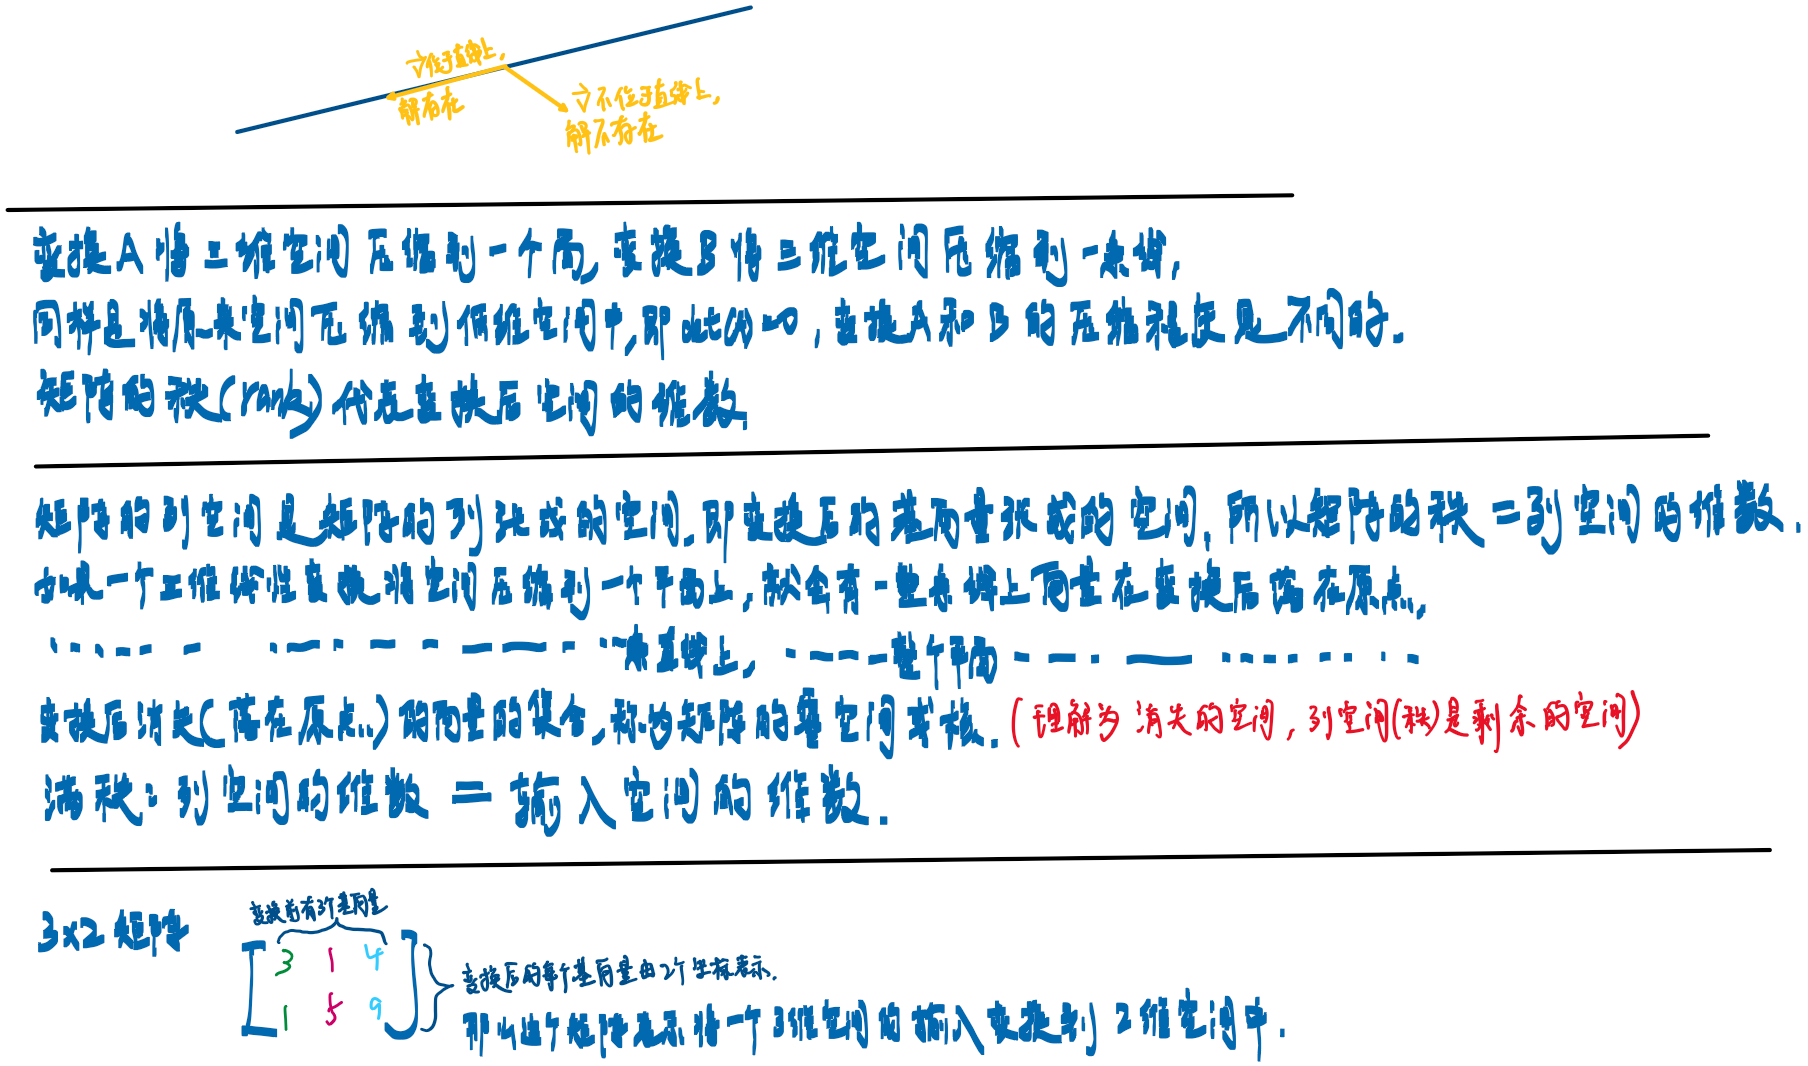 v位于直线上,
解存在
v不位于直线上,
解不存在
变换A将三维空间压缩到一个面,变换B将三维空间压缩到一条线,
同样是将原来空间压缩到低维空间中,即det()=0,变换A和B的压缩程度是不同的.
矩阵的秩(rank)代表变换后空间的维数.
矩阵的列空间是矩阵的列张成的空间.即变换后的基向量张成的空间.所以矩阵的秩=列空间的维数.
如果一个三维线性变换将空间压缩到一个平面上,就会有一整条线上向量在变换后落在原点.,
条直线上,
一整个平面
变换后消失(落在原点.)的向量的集合,称为矩阵的零空间或核.(理解为消失的空间,列空间(秩)是剩余的空间)
满秩:列空间的维数=输入空间的维数.
变换前有3个基向量
3x2矩阵
3 1 4
变换后的每个基向量由2个坐标表示.
1 5 9
那么这个矩阵表示将一个3维空间的输入变换到2维空间中.